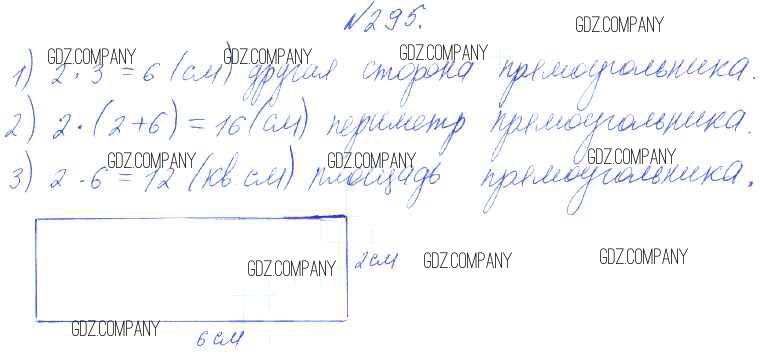 №295.
GDZ.COMPANY
GDZ.COMPANY GDZ.COMPANY GDZ.COMPANY
1) 2 · 3 = 6 (см) другая сторона прямоугольника.
2) 2 · (2+6) = 16 (см) периметр прямоугольника.
GDZ.COMPANY GDZ.COMPANY GDZ.COMPANY
3) 2 · 6 = 12 (кв. см) площадь прямоугольника.
GDZ.COMPANY 2 см GDZ.COMPANY GDZ.COMPANY
GDZ.COMPANY
6 см